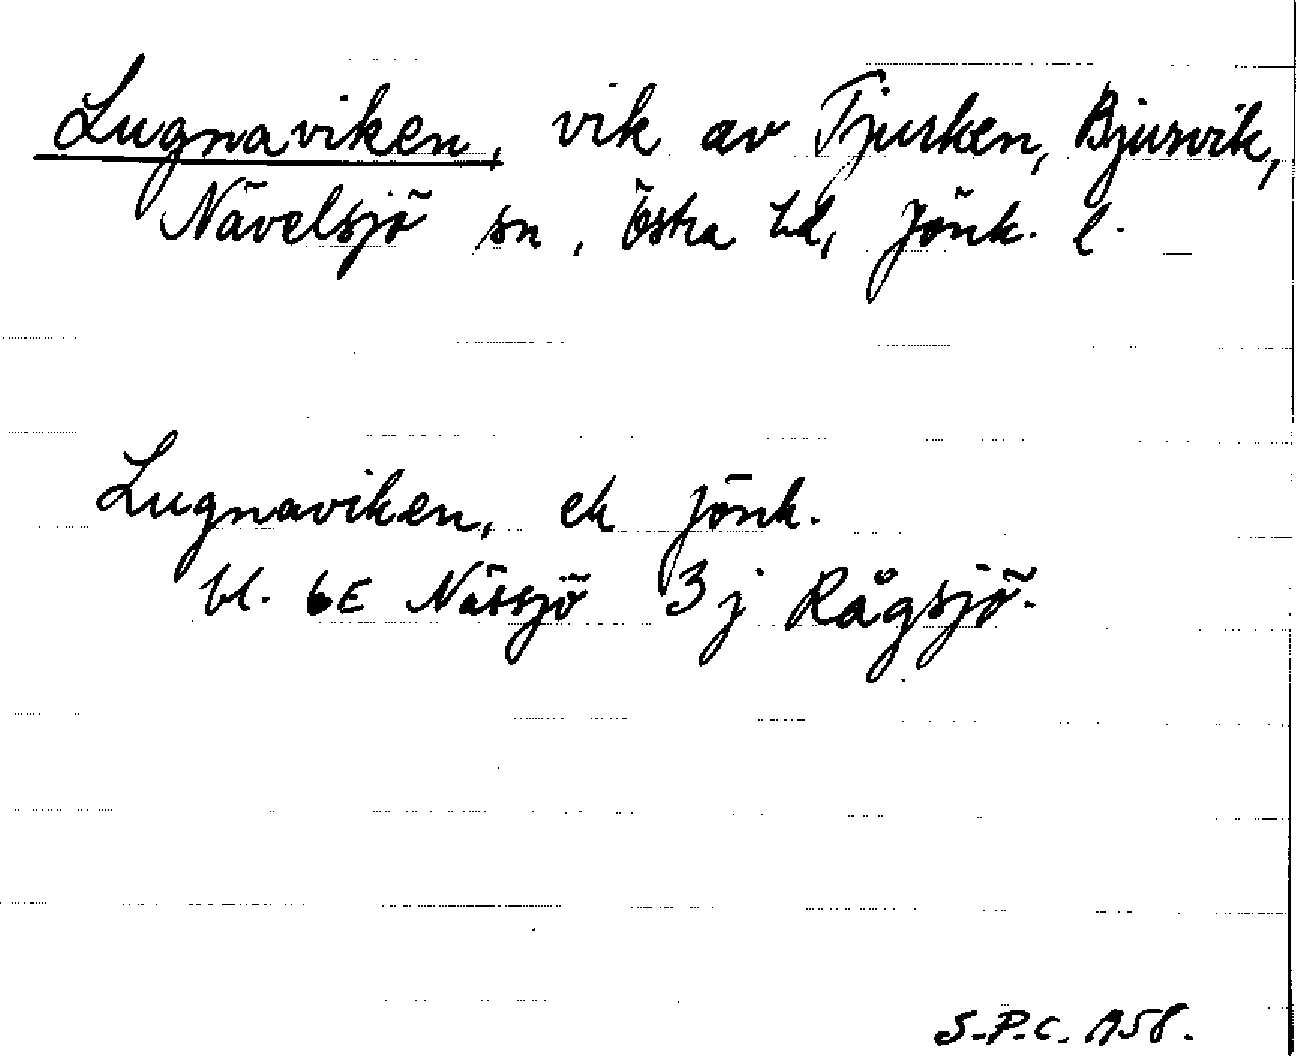 Lugnaviken, vik av Tjurken, Bjursvik,
Nävelsjö sn, Östra hd, Jönk. l.
Lugnaviken, ek Jönk.
bl. 6E Nässjö 3j Rågsjö.
S-P.C. 1958.